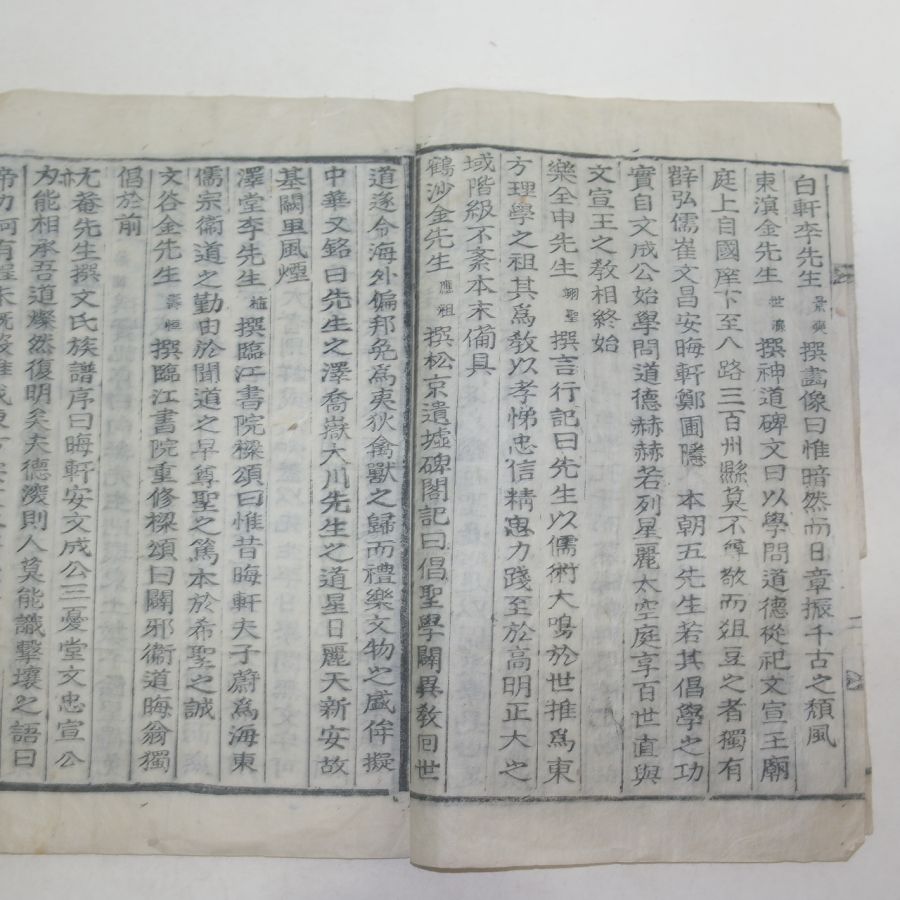 白軒李先生景奭撰畵像曰惟暗然而日章振千古之頹風
東溟金先生世濂撰神道碑文曰以學問道德從祀文宣王廟
庭上自國庠下至八路三百州縣莫不尊敬而俎豆之者獨有
薛弘儒崔文昌安晦軒鄭圃隱 本朝五先生若其倡學之功
實自文成公始學問道德赫赫若列星麗太空庭享百世直與
文宣王之敎相終始
樂全申先生翊聖撰言行記曰先生以儒術大鳴於世推爲東
方理學之祖其爲敎以孝悌忠信精思力踐至於高明正大之
域階級不紊本末備具
鶴沙金先生應祖撰松京遺墟碑閣記曰倡聖學闢異敎回世
道遂令海外偏邦免爲夷狄禽獸之歸而禮樂文物之盛侔擬
中華又銘曰先生之澤喬嶽大川先生之道星日麗天新安故
基闕里風煙
澤堂李先生植撰臨江書院樑頌曰惟昔晦軒夫子蔚爲海東
儒宗衛道之勤由於聞道之早尊聖之篤本於希聖之誠
文谷金先生壽恒撰臨江書院重修樑頌曰闢邪衛道晦翁獨
倡於前
尤菴先生撰文氏族譜序曰晦軒安文成公三憂堂文忠宣公
亦
為能相承吾道燦然復明矣夫德深則人莫能識擊壤之語曰
帝力何有